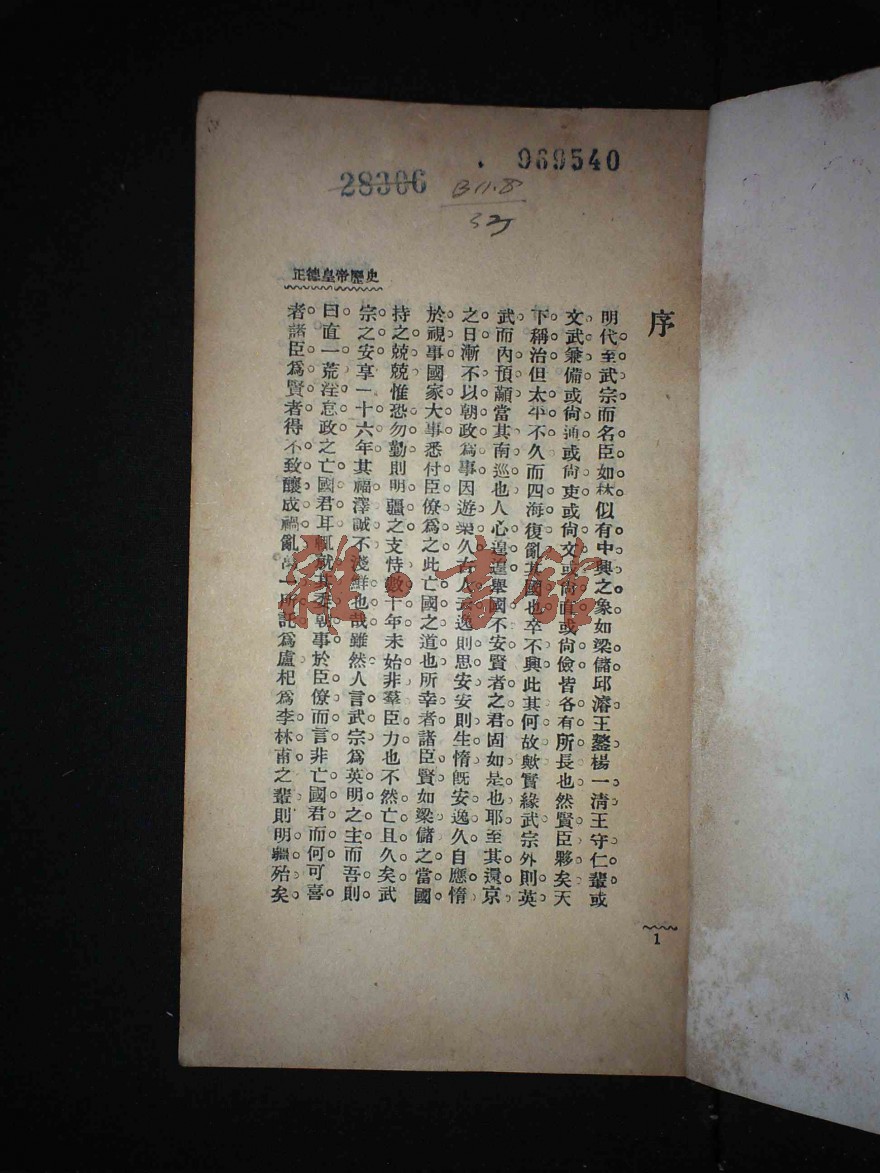 969540
28306
B11.8
正德皇帝歷史
序
明代至武宗而名臣如林似有中興之象如梁儲邱濬王鏊楊一淸王守仁輩或
文武兼備或尙通或尙吏或尙文或尙直或尙儉皆各有所長也然賢臣夥矣天
下稱治但太平不久而四海復亂其國也卒不興此其何故歟實緣武宗外則英
武而內預顢當其南巡也人心遑遑舉國不安賢者之君固如是也耶至其還京
之日漸不以朝政爲事因遊樂久 人 逸則思安安則生惰旣安逸久自應惰
於視事國家大事悉付臣僚爲之此亡國之道也所幸者諸臣賢如梁儲之當國
持之兢兢惟恐勿勤則明疆之支恃數十年未始非羣臣力也不然亡且久矣武
宗之安享一十六年其福澤誠不淺鮮也哉雖然人言武宗爲英明之主而吾則
曰直一荒淫怠政之亡國君耳 就其委朝事於臣僚而言非亡國君而何可喜
者諸臣爲賢者得不致釀成禍亂 一所託爲盧杞爲李林甫之輩則明疆殆矣
1
雜·書館